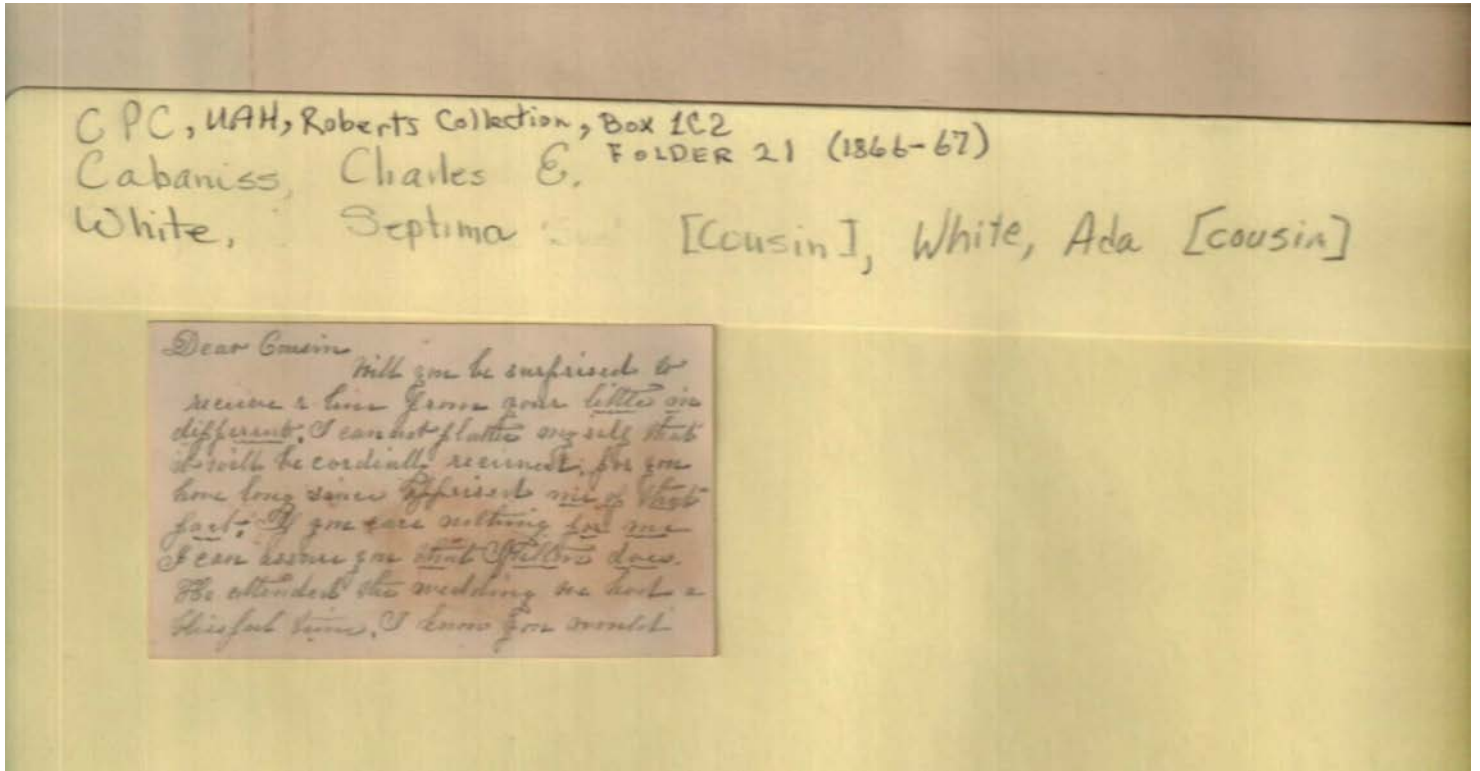 C P C, UAH, Roberts Collection, Box 1C2
FOLDER 21 (1866-67)
Cabaniss, Charles E.
White, Septima [Cousin], White, Ada [cousin]
Dear Cousin
Will you be surprised to
recieve a line from your little in
different. I cannot flatter my self that
it will be cordially recieved, for you
have long since apprised me of that
fact. If you care nothing for me
I can assure you that does.
He attended the wedding we had a
blissful time. I know you would